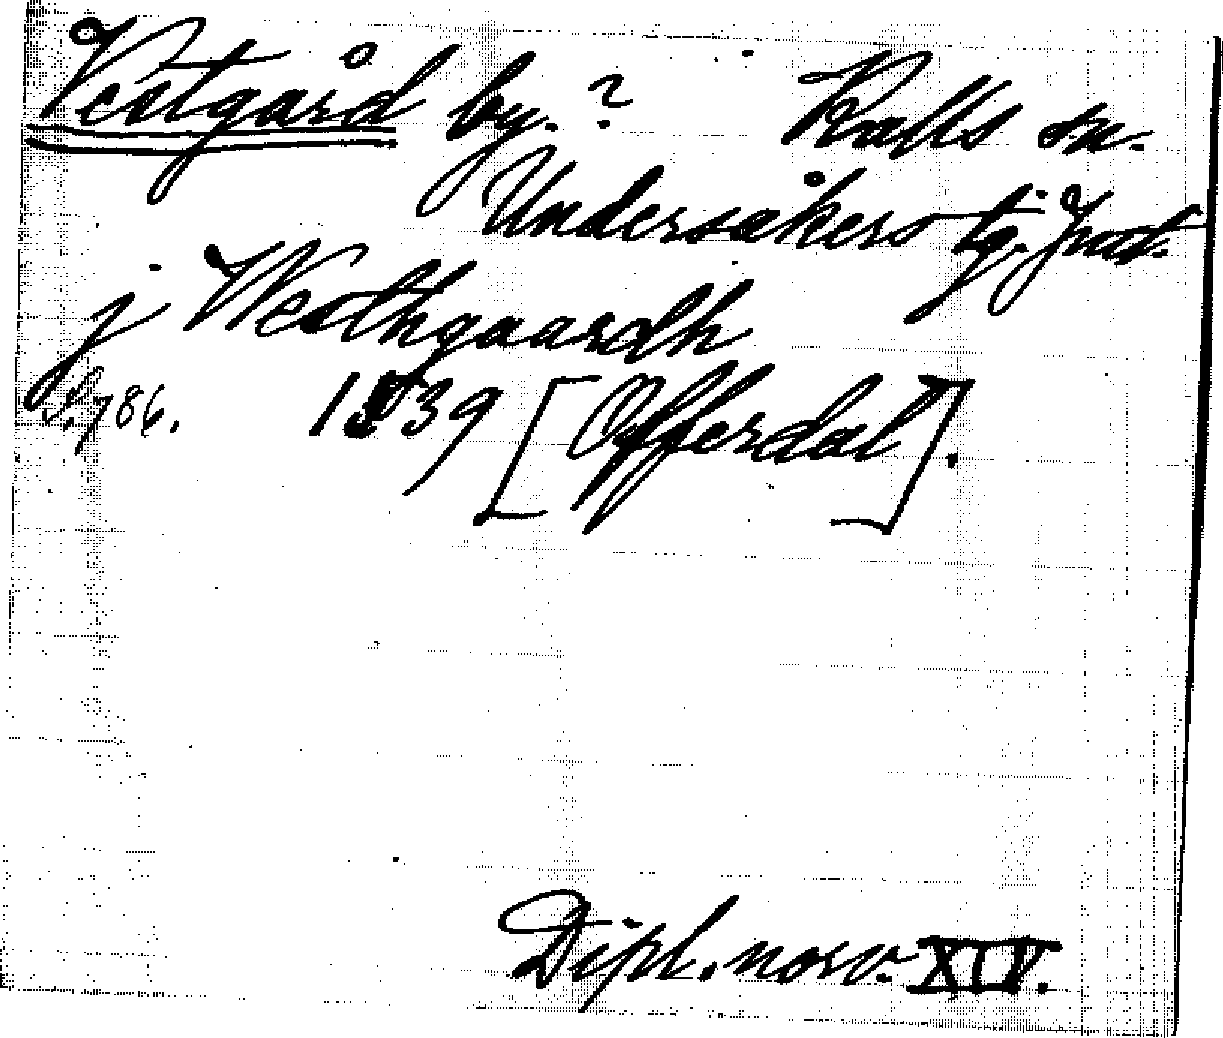 Vestgård by. ? Kalls sn.
Undersåkers tg. Jmtl.
j Westhgaardh
S. 786. 1539 [Offerdal].
Dipl. norv. XIV.